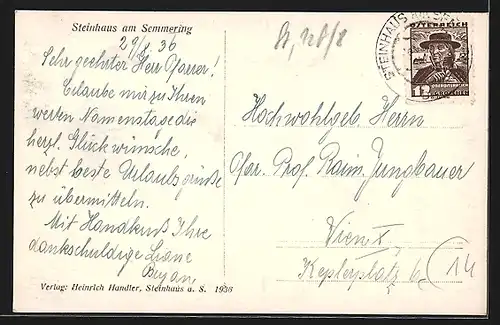 Steinhaus am Semmering
29/8. 36
Sehr geehrter Herr Pfarrer!
Erlaube mir zu Ihren
werten Namenstage die
herzl. Glückwünsche,
nebst beste Urlaubsgrüße
zu übermitteln.
Mit Handkuß Ihre
dankschuldige
Verlag: Heinrich Handler, Steinhaus a. S. 1936
STEINHAUS AM
ÖSTERREICH
12
GROSCHEN
Hochwohlgeb. Herrn
Pfar. Prof. Raim. Jungbauer
Wien X.
Keplerplatz 6.
14